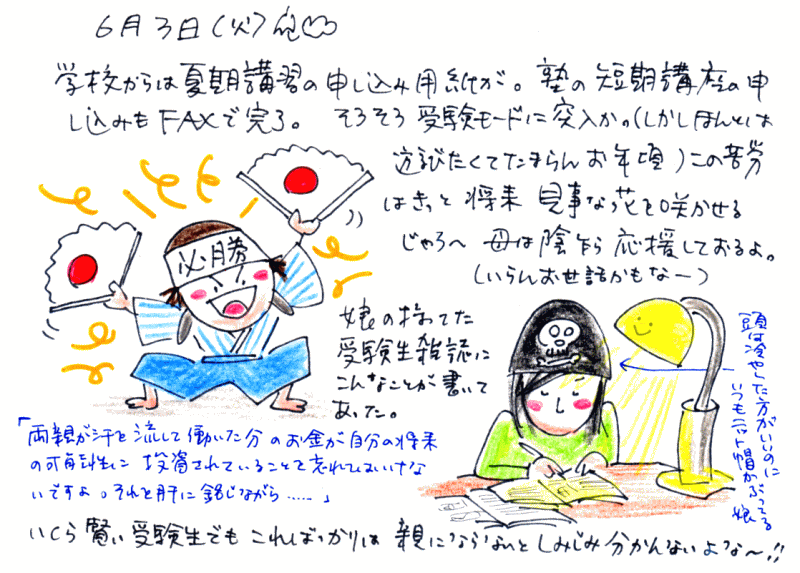 6月3日(火)
学校からは夏期講習の申し込み用紙が。塾の短期講座の申
し込みもFAXで完了。 そろそろ受験モードに突入か。(しかしほんとは
遊びたくてたまらんお年頃)この苦労
はきっと将来 見事な花を咲かせる
じゃろヘ 母は陰乍ら 応援しておるよ。
(いらんお世話かもなー)
必勝
娘の持ってた
受験生雑誌に
こんなことが書いて
あった。
頭は冷やした方がいいのに
いつもニット帽かぶってる
娘
「両親が汗を流して働いた分のお金が自分の将来
の可能性に投資されていることを忘れてはいけな
いですよ。それを肝に銘じながら……」
いくら賢い受験生でもこればっかりは 親にならないとしみじみ分かんないよな〜!!